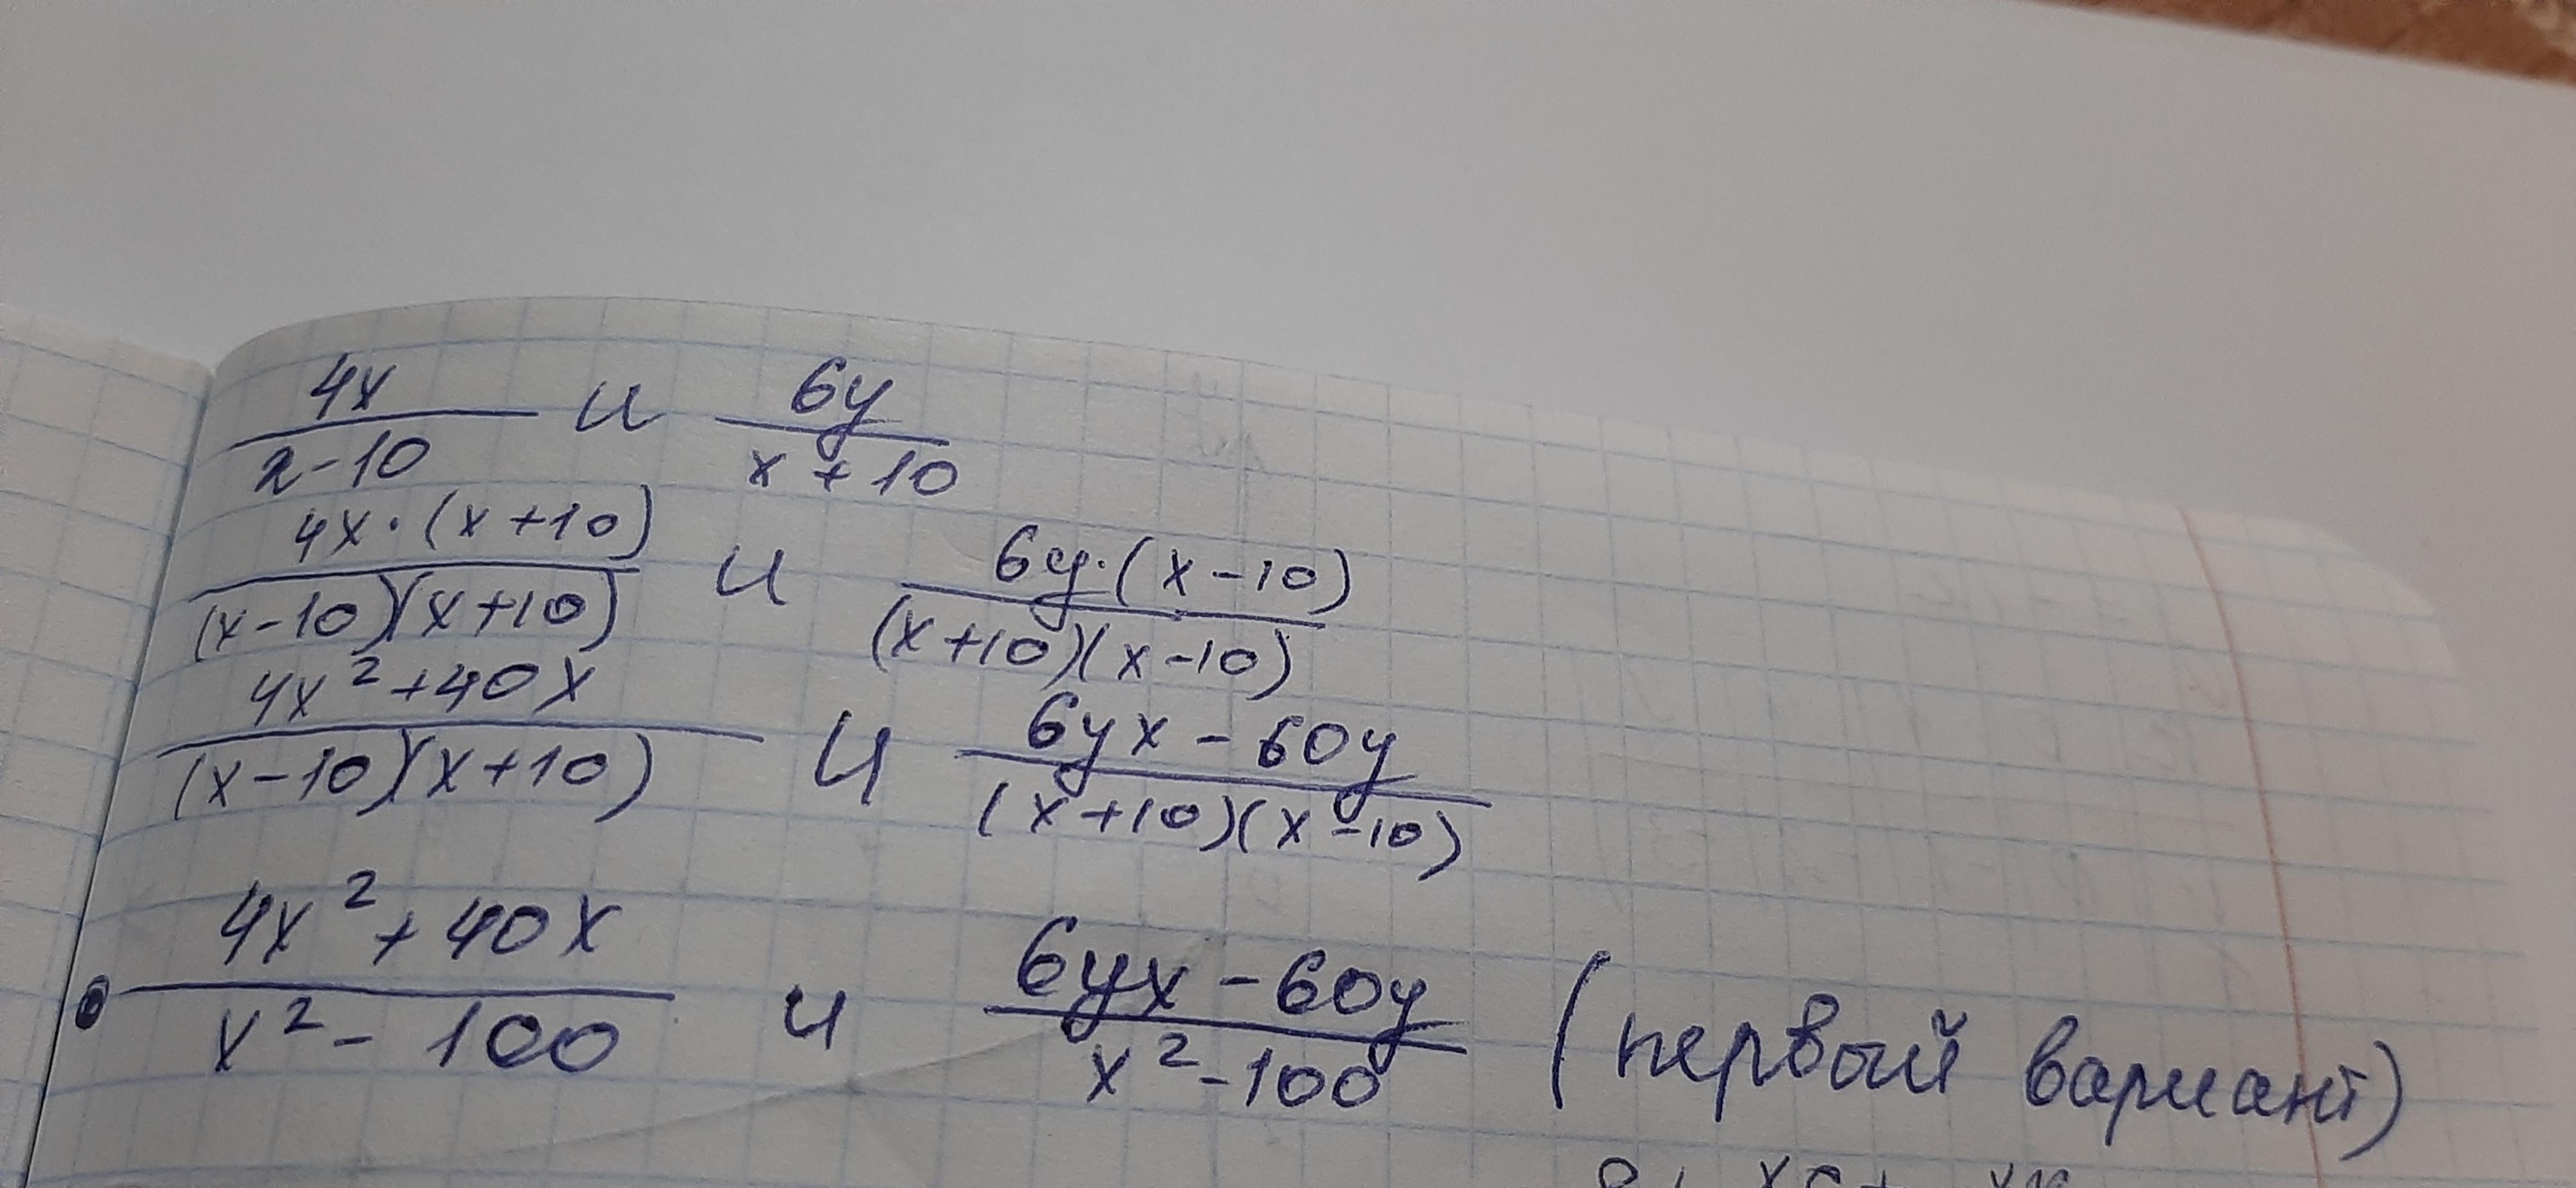 4x / x-10 и 6y / x+10
4x·(x+10) / (x-10)(x+10) и 6y·(x-10) / (x+10)(x-10)
4x²+40x / (x-10)(x+10) и 6yx-60y / (x+10)(x-10)
4x²+40x / x²-100 и 6yx-60y / x²-100 (первый вариант)